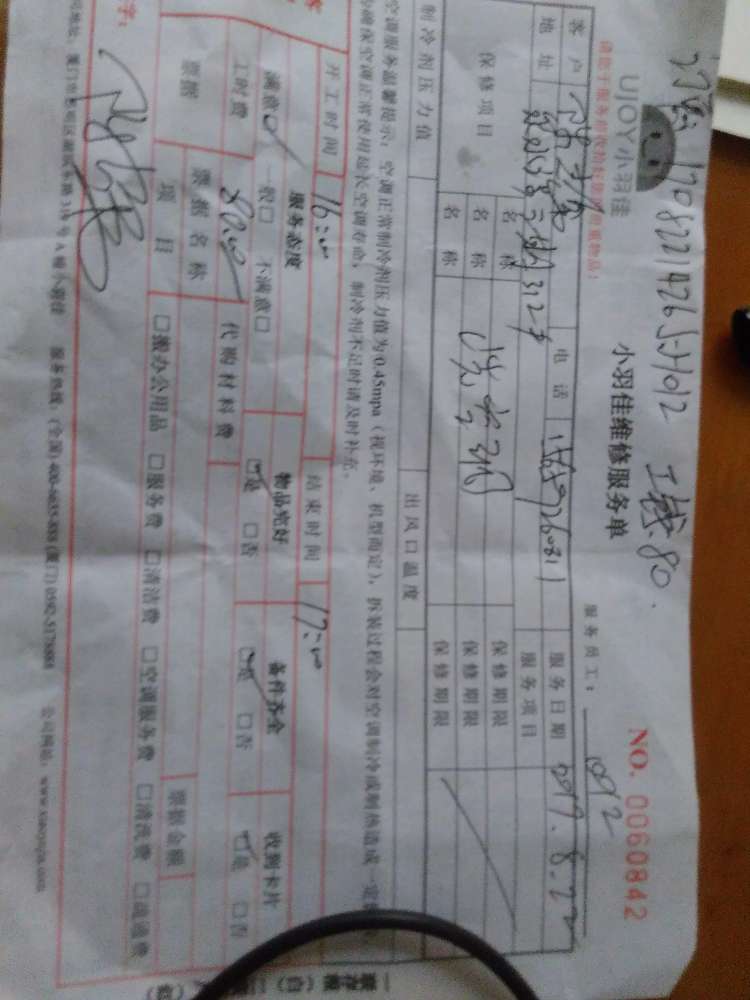 1708221426551012 工钱:80.
UJOY小羽佳
小羽佳维修服务单
NO. 0060842
服务员工: 1092
客户 电话 服务日期 2017.8.22
地址 服务项目
保修项目 名称 保修期限
名称 洗空调 保修期限
名称 保修期限
制冷剂压力值 出风口温度
空调服务温馨提示:空调正常制冷剂压力值为0.45mpa(视环境、机型而定),拆装过程会对空调制冷或制热造成一定
确保空调正常使用延长空调寿命,制冷剂不足时请及时补充。
开工时间 16:00 结束时间 17:00
服务态度 物品完好 备件齐全 收到卡片
满意 一般□ 不满意□ 是 □否 是 □否 是 □否
工时费 80.00 代购材料费
票据 票据名称 票据金额
项目 □搬办公用品 □服务费 □清洁费 □空调服务费 □清洗费 □疏通费
字:
服务热线:(全国)400-6655-888 (厦门)0592-5176888 公司网站:www.xiaoyujia.com